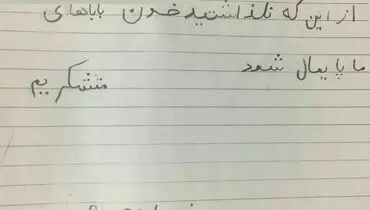 از این که نگذاشتید خون باباهای
ما پایمال شود
متشکریم